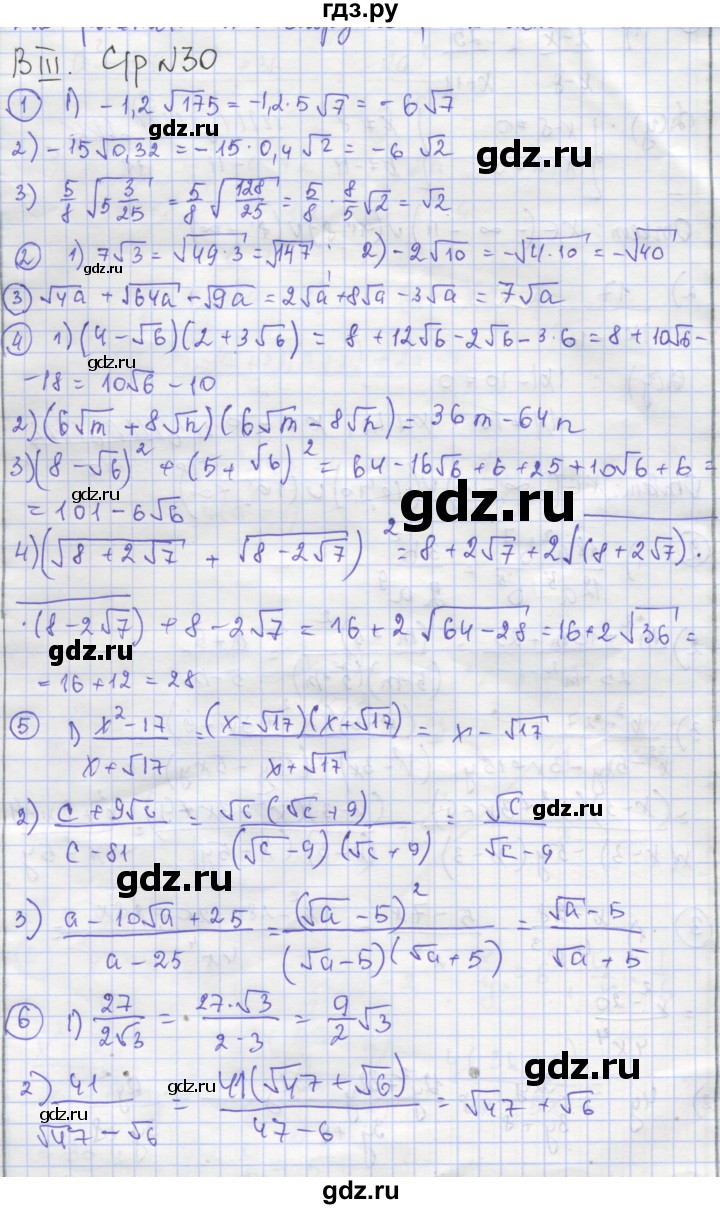 гдз.ру
В III. Ср №30
① 1) - 1,2 √175 = -1,2·5√7 = - 6√7
gdz.ru
2) -15√0,32 = -15·0,4√2 = -6 √2
gdz.ru
3) 5/8 √(5 3/25) = 5/8 √(128/25) = 5/8 · 8/5 √2 = √2
② 1) 7√3 = √(49·3) = √147 ; 2) -2√10 = -√(4·10) = -√40
gdz.ru
③ √4a + √64a - √9a = 2√a + 8√a - 3√a = 7√a
④ 1) (4-√6)(2+3√6) = 8 + 12√6 - 2√6 - 3·6 = 8 + 10√6 -
gdz.ru
-18 = 10√6 - 10
2) (6√m + 8√n)(6√m - 8√n) = 36m - 64n
3) (8-√6)² + (5+√6)² = 64 - 16√6 + 6 + 25 + 10√6 + 6 =
gdz.ru
= 101 - 6√6
gdz.ru
4) (√(8+2√7) + √(8-2√7))² = 8 + 2√7 + 2√((8+2√7) ·
·(8-2√7)) + 8 - 2√7 = 16 + 2√(64-28) = 16 + 2√36 =
gdz.ru
gdz.ru
= 16 + 12 = 28
⑤ 1) (x²-17)/(x+√17) = ((x-√17)(x+√17))/(x+√17) = x - √17
gdz.ru
2) (c+9√c)/(c-81) = (√c(√c+9))/((√c-9)(√c+9)) = √c/(√c-9)
gdz.ru
gdz.ru
3) (a-10√a+25)/(a-25) = (√a-5)²/((√a-5)(√a+5)) = (√a-5)/(√a+5)
gdz.ru
⑥ 1) 27/(2√3) = (27·√3)/(2·3) = 9/2 √3
gdz.ru
2) 41/(√47-√6) = (41(√47+√6))/(47-6) = √47 + √6
gdz.ru
gdz.ru
gdz.ru
gdz.ru